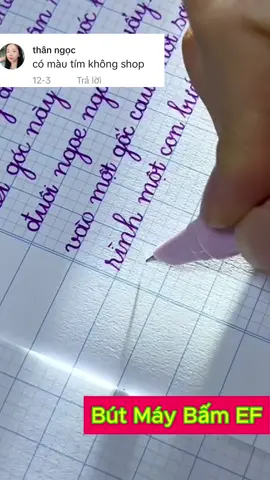 thân ngọc
có màu tím không shop
12-3 Trả lời
gốc này
đuôi ngoe ngo
vào một gốc cau
rình một con bướ
Bút Máy Bấm EF